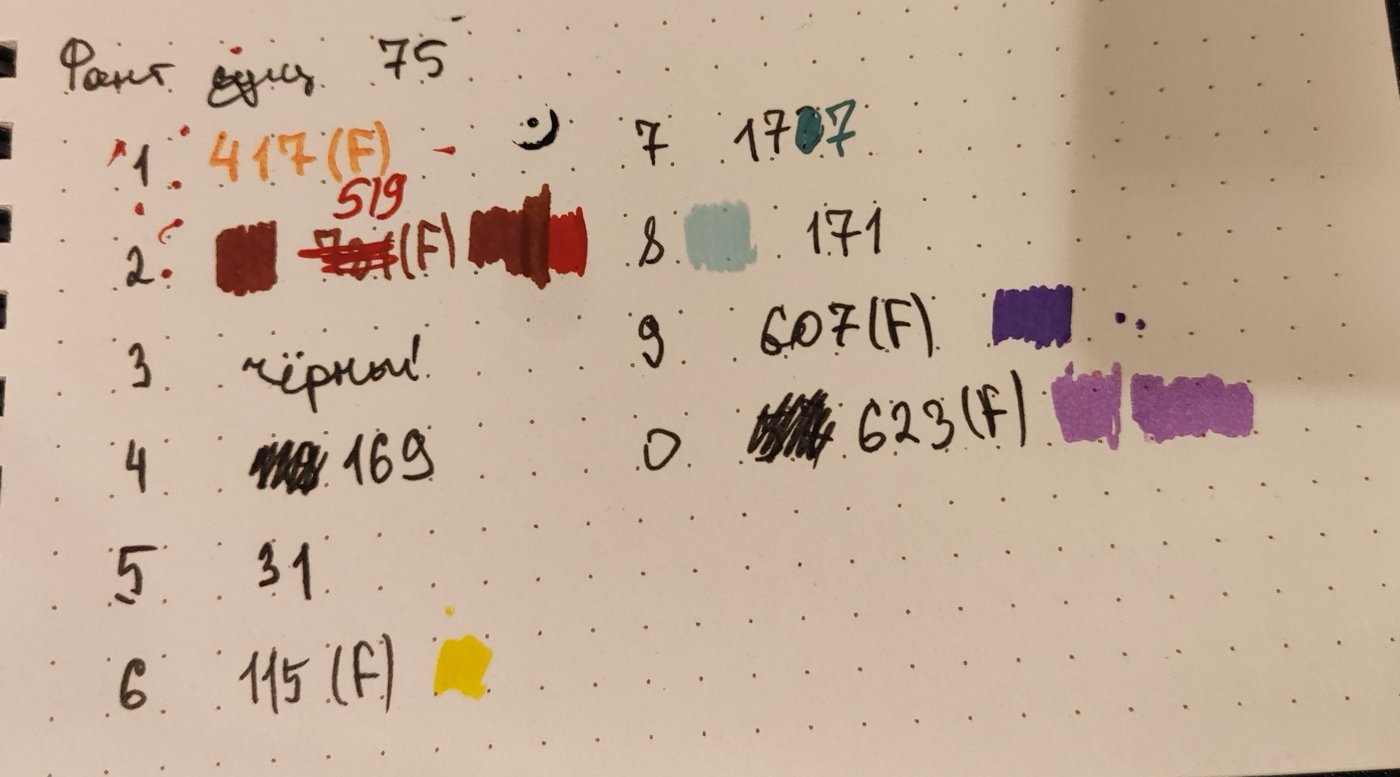 Фант 75
1 417(F)
2 519 (F)
3 чёрный!
4 169
5 31
6 115 (F)
7 1707
8 171
9 607(F)
0 623(F)